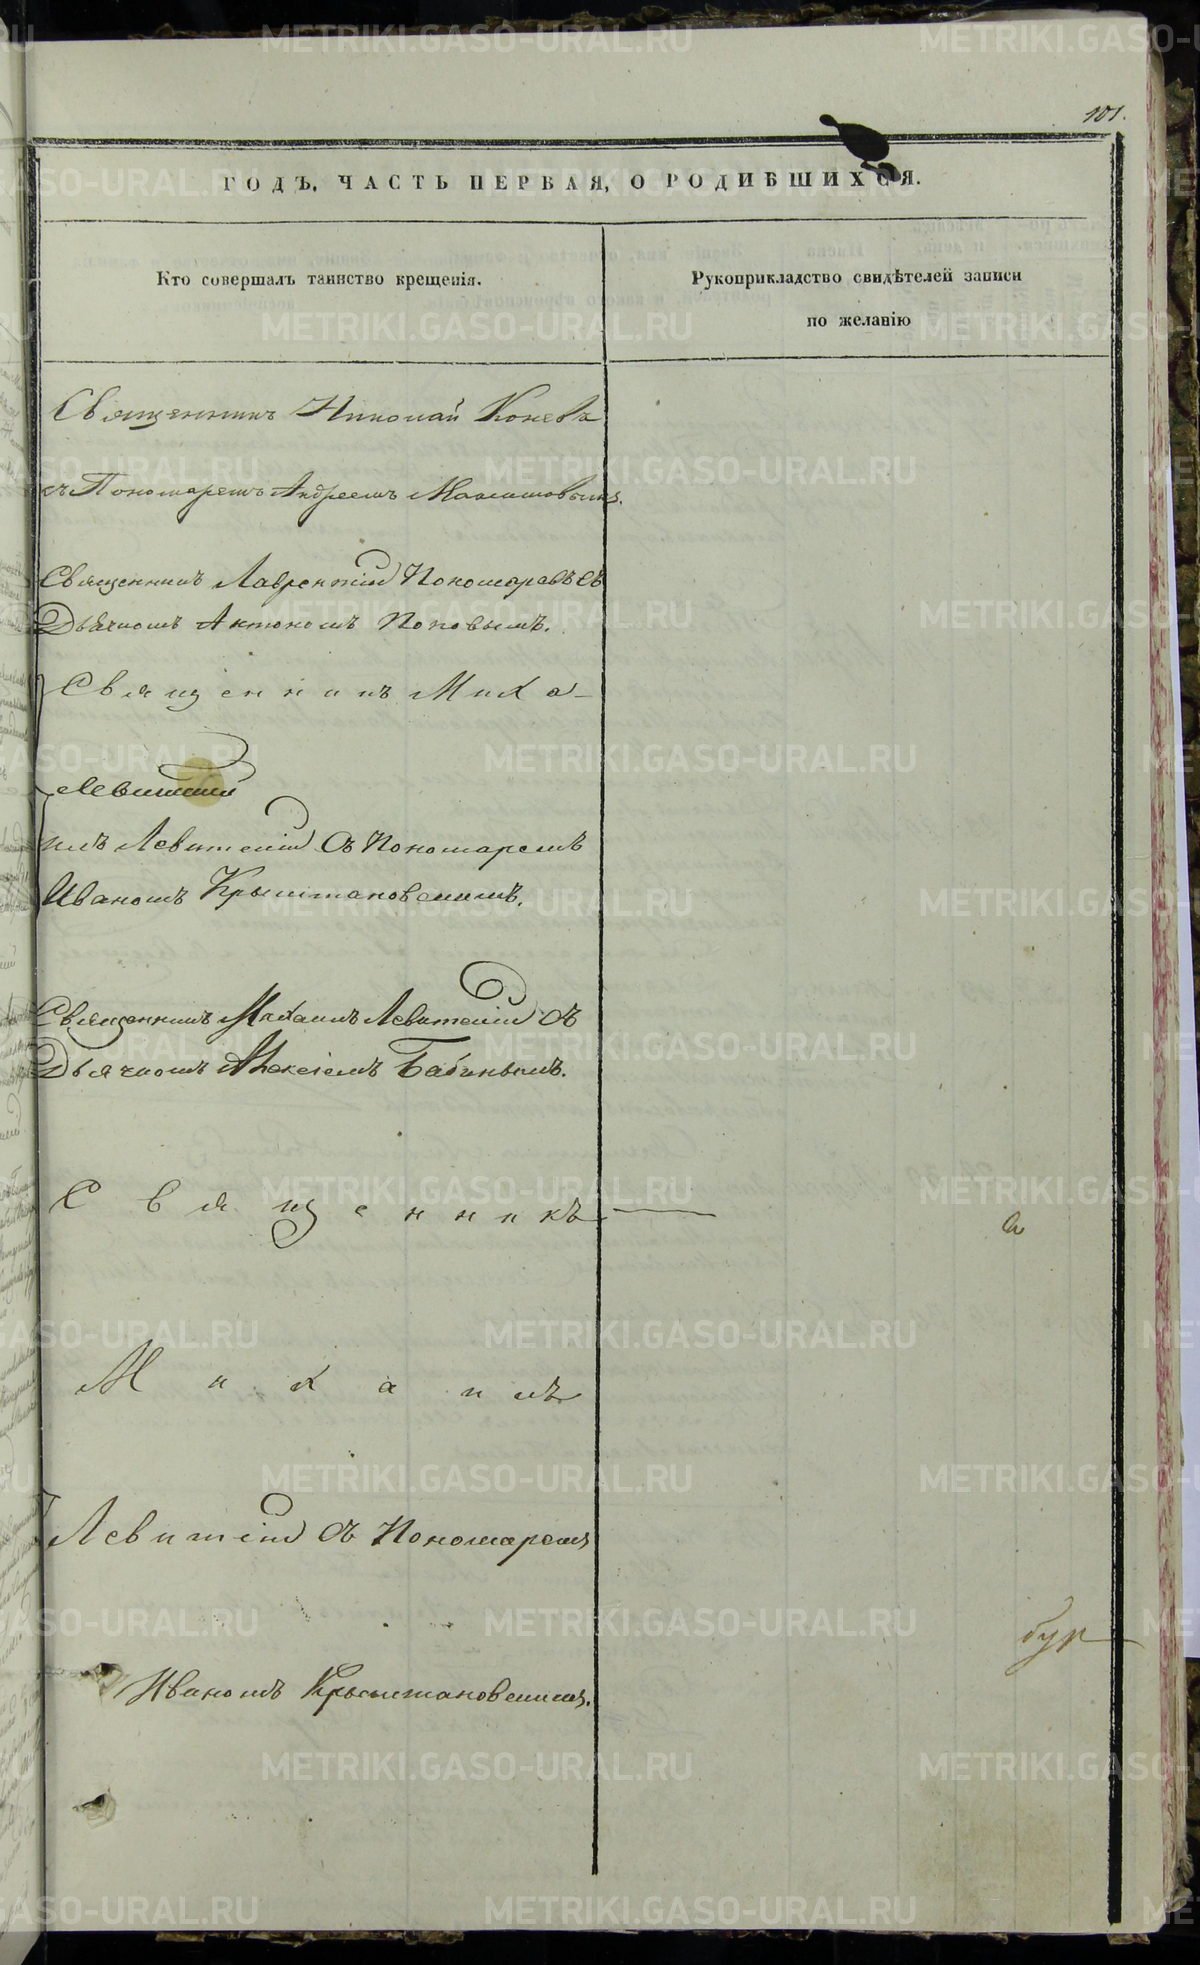 101.
ГОДЪ, ЧАСТЬ ПЕРВАЯ, О РОДИВШИХСЯ.
Кто совершалъ таинство крещенія.
Рукоприкладство свидѣтелей записи
по желанію
Священникъ Николай Коневъ
съ Пономаремъ Андреемъ
Священникъ Лаврентій Пономаревъ съ
Дьячкомъ Антономъ Поповымъ.
Священникъ Миха-
Левитскій
илъ Левитскій съ Пономаремъ
Иваномъ Крыжановскимъ.
Священникъ Михаилъ Левитскій съ
Дьячкомъ Алексѣемъ Бабинымъ.
Священникъ
Михаилъ
Левитскій съ Пономаремъ
Иваномъ Крыжановскимъ.
METRIKI.GASO-URAL.RU